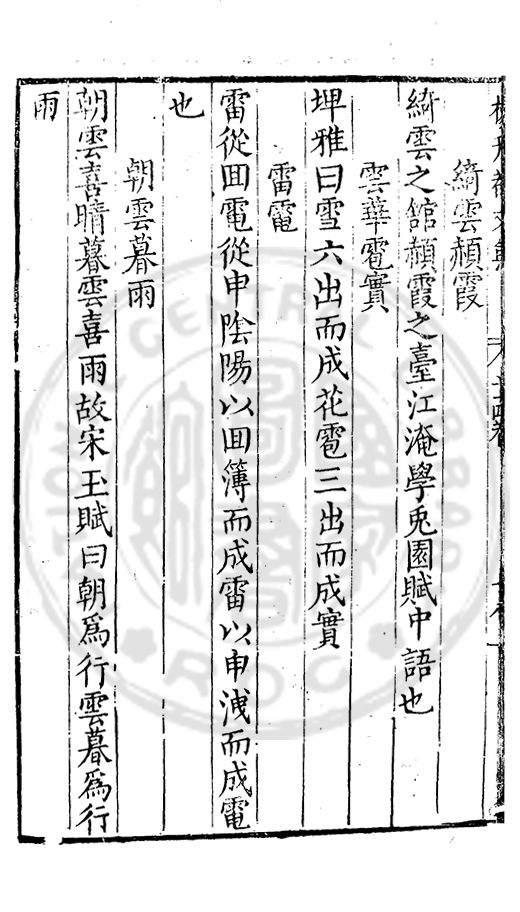 綺雲赬霞
綺雲之館赬霞之臺江淹學兎園賦中語也
雲華雹實
埤雅曰雪六出而成花雹三出而成實
雷電
雷從回電從申陰陽以回簿而成雷以申洩而成電
也
朝雲暮雨
朝雲喜晴暮雲喜雨故宋玉賦曰朝為行雲暮為行
雨
CENTRAL
ROC